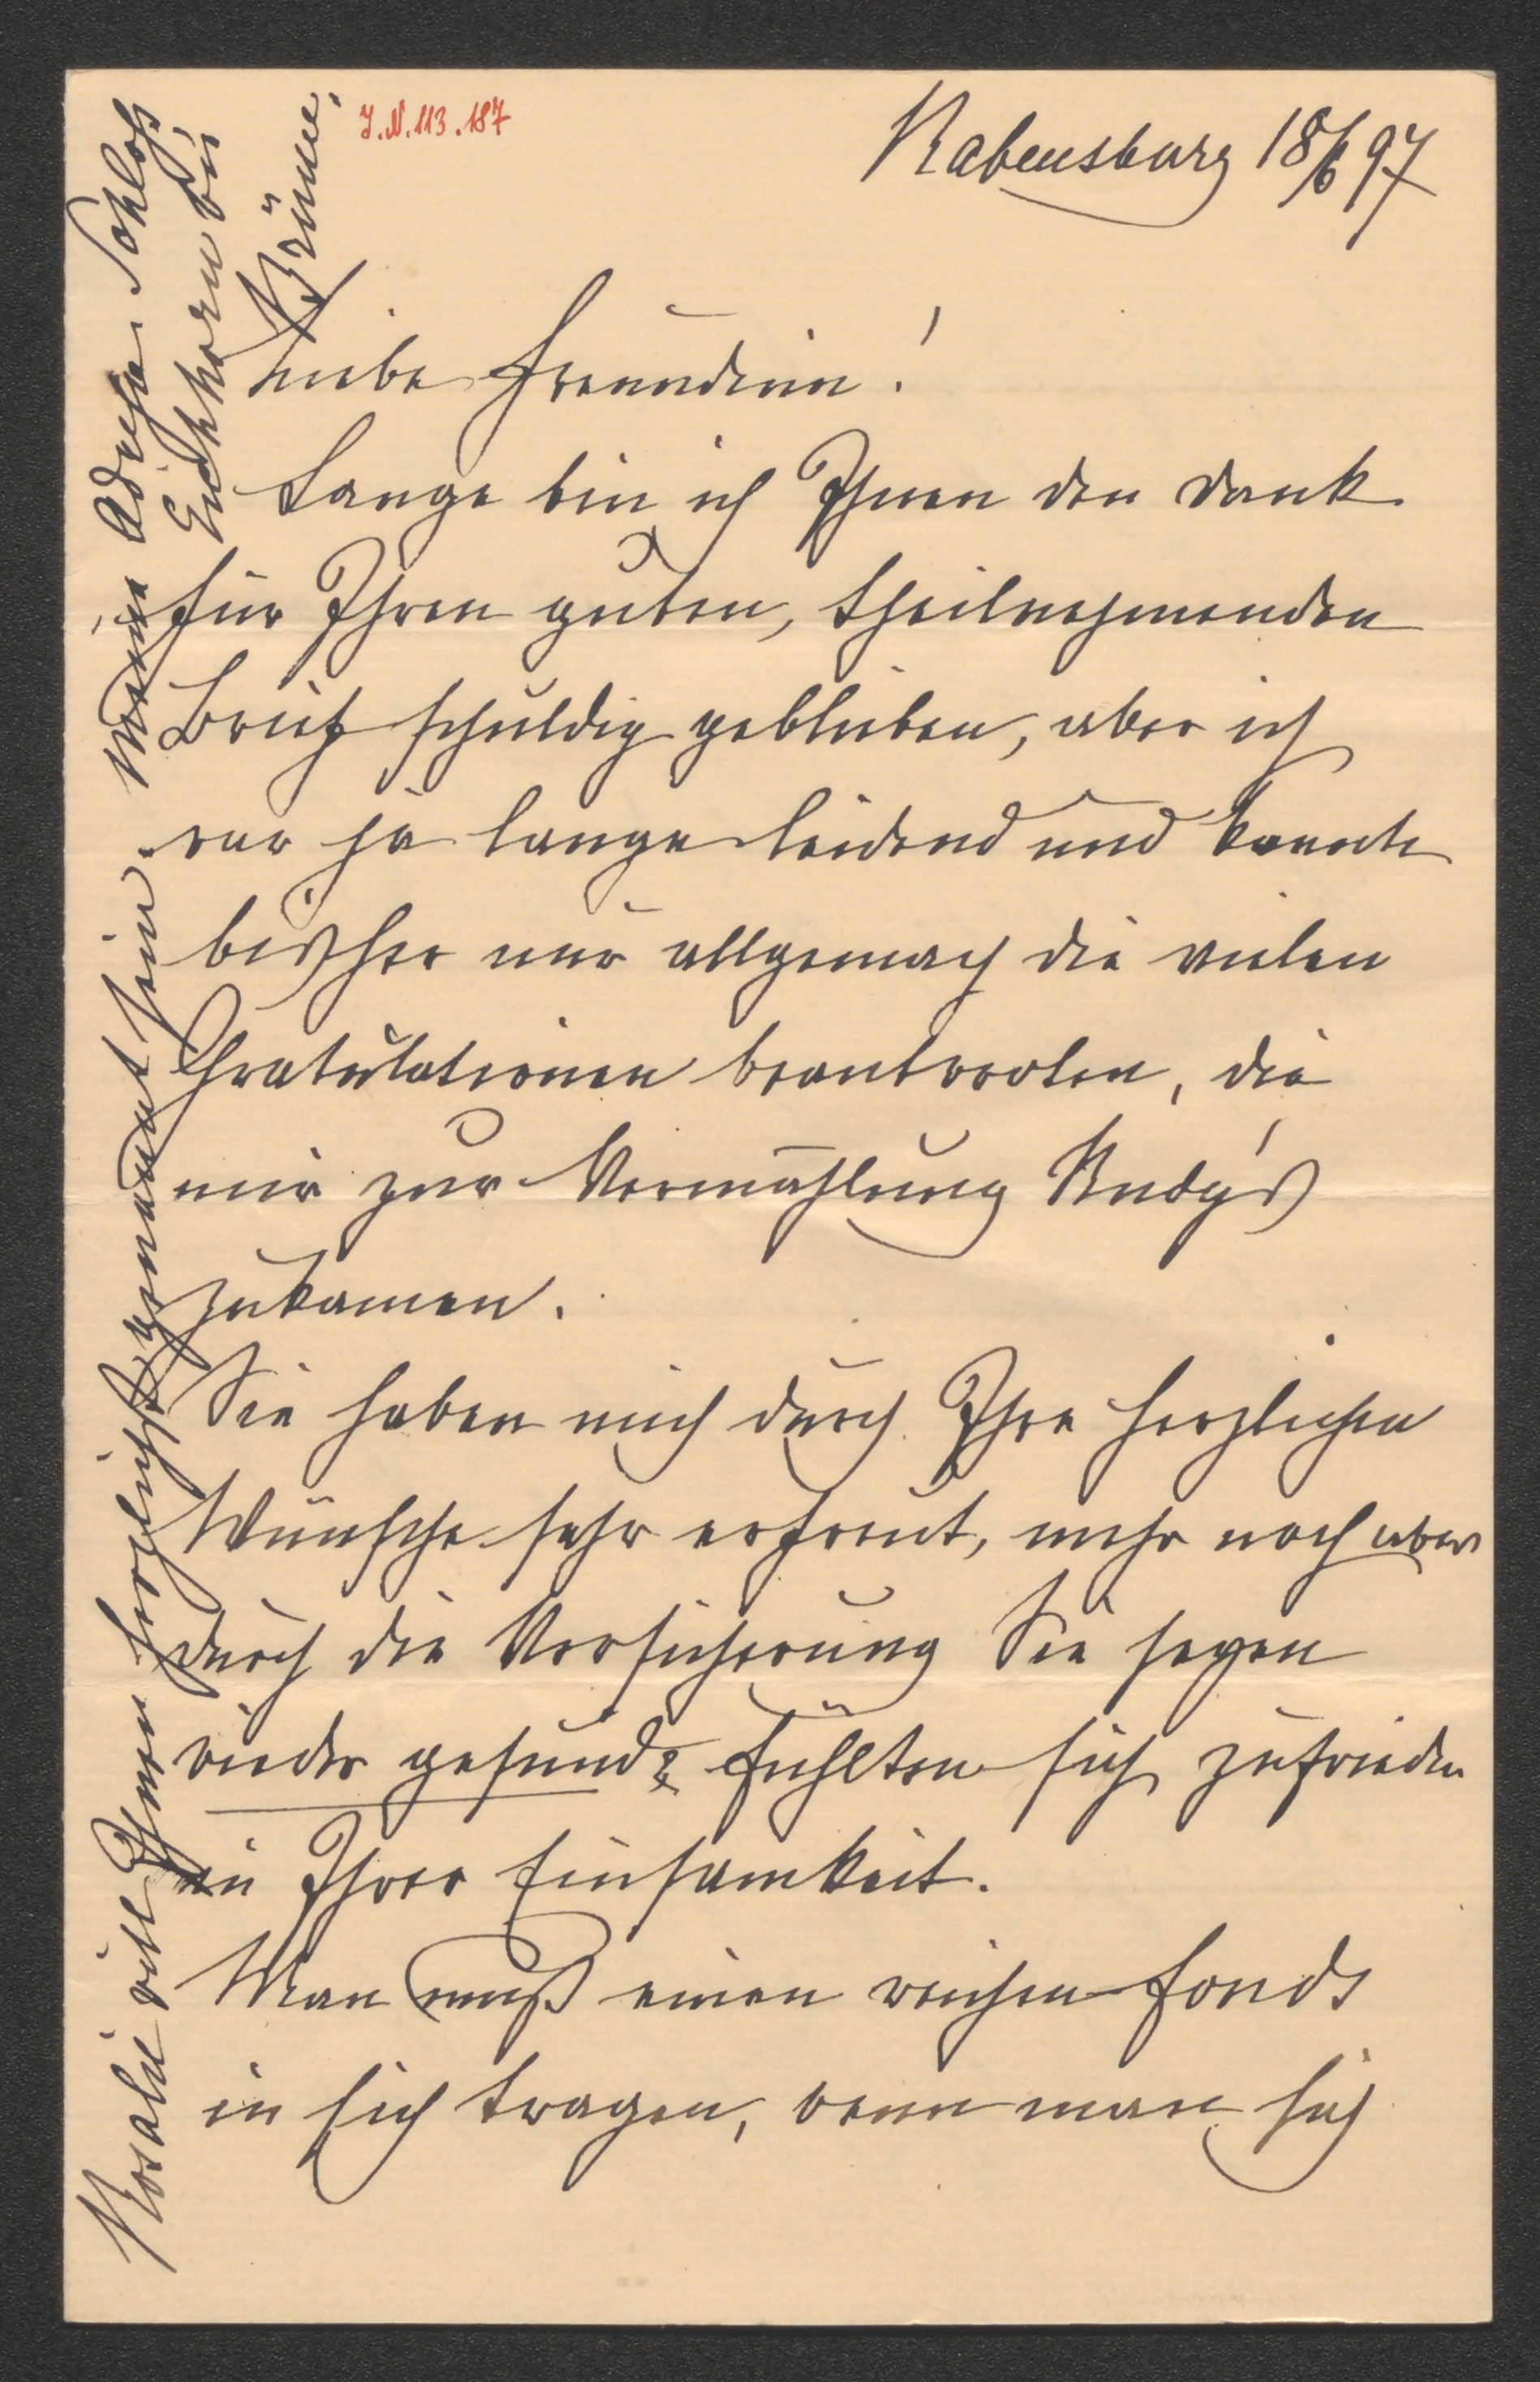 J.N. 113.187
Rabensburg 18/6 97
Liebe Freundinn!
Lange bin ich Ihnen den Dank
für Ihren guten, theilnehmenden
Brief schuldig geblieben, aber ich
war ja lange leidend und konnte
bisher nur allgemach die vielen
Gratulationen beantworten, die
mir zur Vermählung Rudy's
zukamen.
Sie haben mich durch Ihre herzlichen
Wünsche sehr erfreut, mehr noch aber
durch die Versicherung Sie seyen
wieder gesund & fühlten sich zufrieden
in Ihrer Einsamkeit.
Man muß einen reichen Fonds
in sich tragen, wenn man sich
Rosalie will Ihnen herzlichst genannt sein. Meine Adresse Schloß
Eichhorn bei
Brünn.